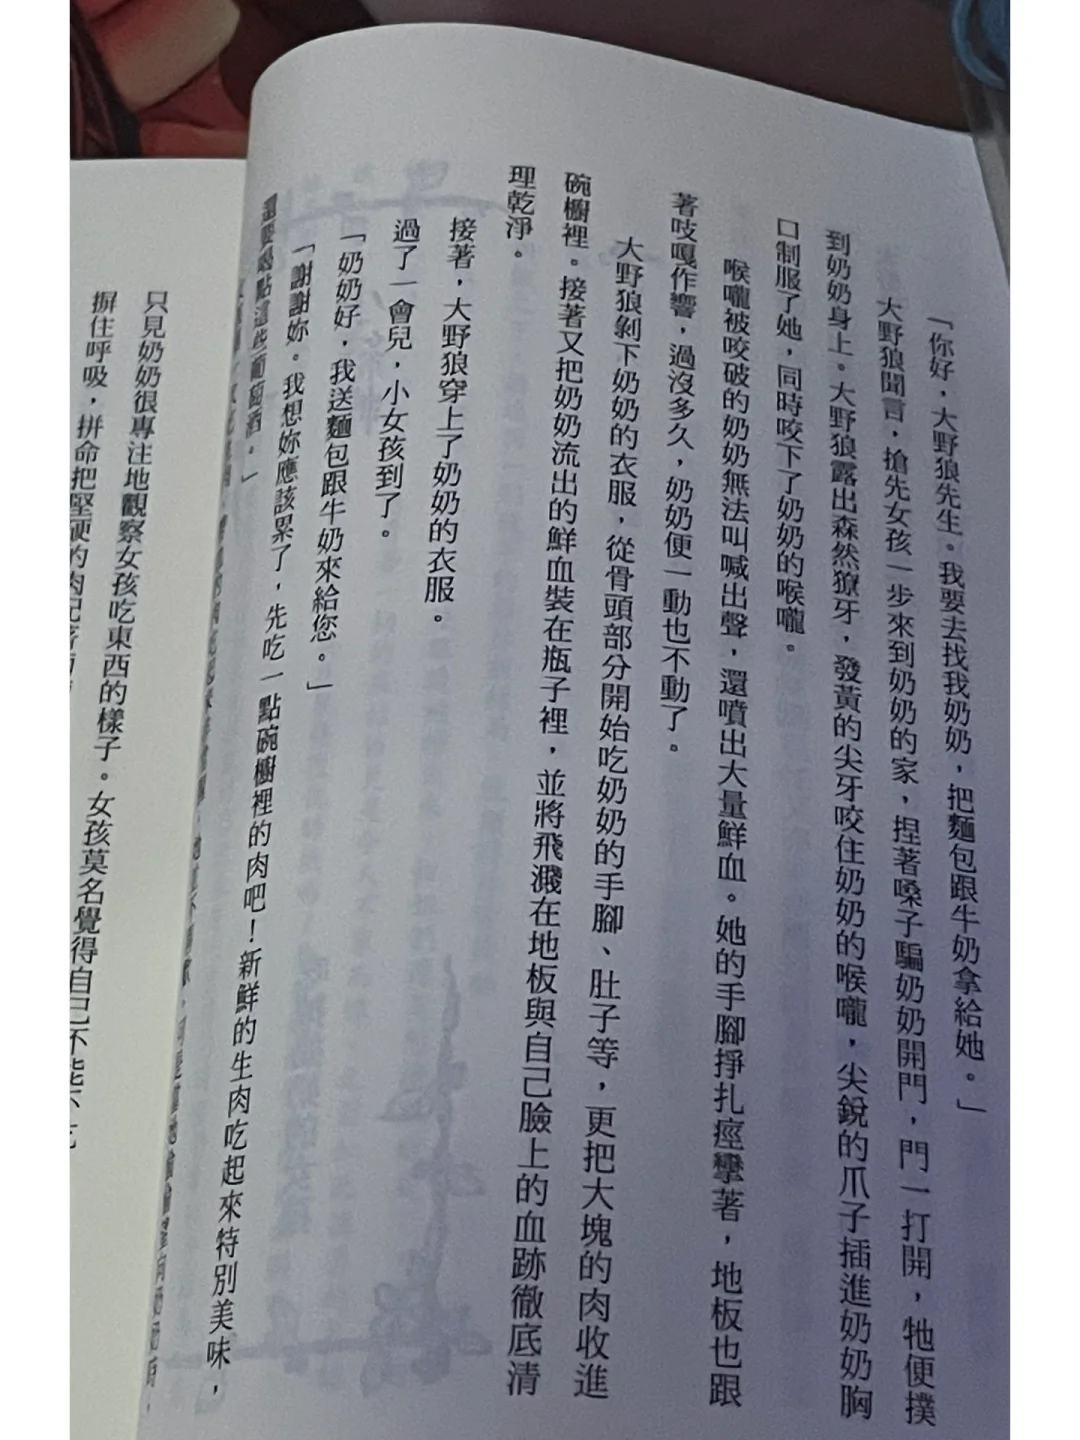 「你好，大野狼先生。我要去找我奶奶，把麵包跟牛奶拿給她。」
大野狼聞言，搶先女孩一步來到奶奶的家，捏著嗓子騙奶奶開門，門一打開，牠便撲
到奶奶身上。大野狼露出森然獠牙，發黃的尖牙咬住奶奶的喉嚨，尖銳的爪子插進奶奶胸
口制服了她，同時咬下了奶奶的喉嚨。
喉嚨被咬破的奶奶無法叫喊出聲，還噴出大量鮮血。她的手腳掙扎痙攣著，地板也跟
著吱嘎作響，過沒多久，奶奶便一動也不動了。
大野狼剝下奶奶的衣服，從骨頭部分開始吃奶奶的手腳、肚子等，更把大塊的肉收進
碗櫥裡。接著又把奶奶流出的鮮血裝在瓶子裡，並將飛濺在地板與自己臉上的血跡徹底清
理乾淨。
接著，大野狼穿上了奶奶的衣服。
過了一會兒，小女孩到了。
「奶奶好，我送麵包跟牛奶來給您。」
「謝謝妳。我想妳應該累了，先吃一點碗櫥裡的肉吧！新鮮的生肉吃起來特別美味，
還要喝點這些葡萄酒。」
只見奶奶很專注地觀察女孩吃東西的樣子。女孩莫名覺得自己不能不吃
摒住呼吸，拼命把堅硬的肉